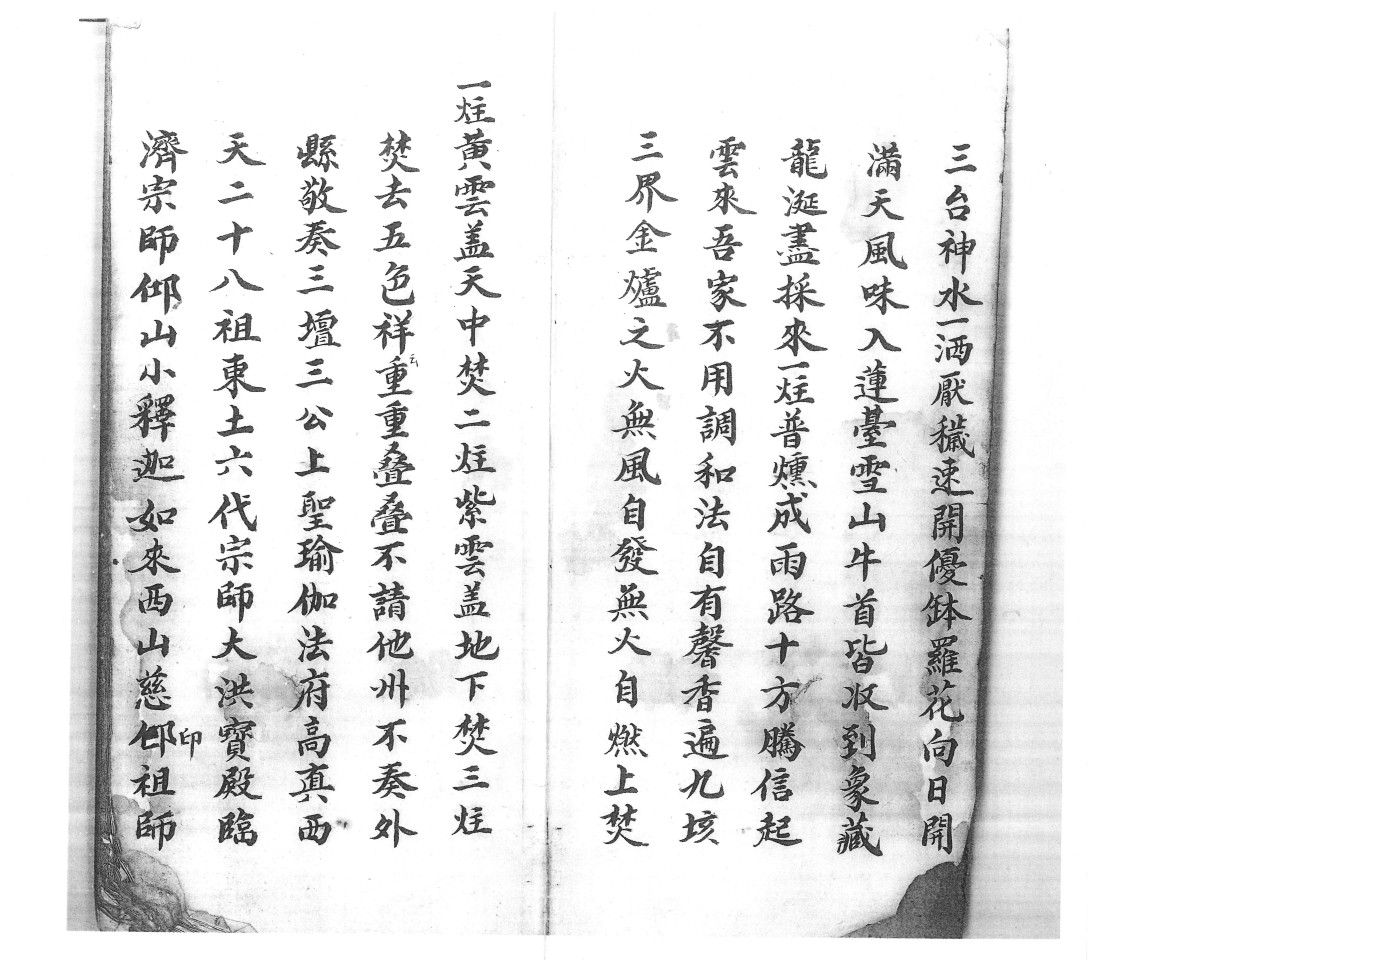 三台神水一洒厭穢速開優鉢羅花向日開
滿天風味入蓮臺雪山牛首皆収到象藏
龍涎盡採來一炷普燻成雨路十方騰信起
雲來吾家不用調和法自有馨香遍九垓
三界金爐之火無風自發無火自燃上焚
一炷黃雲盖天中焚二炷紫雲盖地下焚三炷
焚去五色祥重重叠叠不請他州不奏外
云
縣敬奏三壇三公上聖瑜伽法府高真西
天二十八祖東土六代宗師大洪寶殿臨
濟宗師仰山小釋迦如來西山慈仰祖師
印